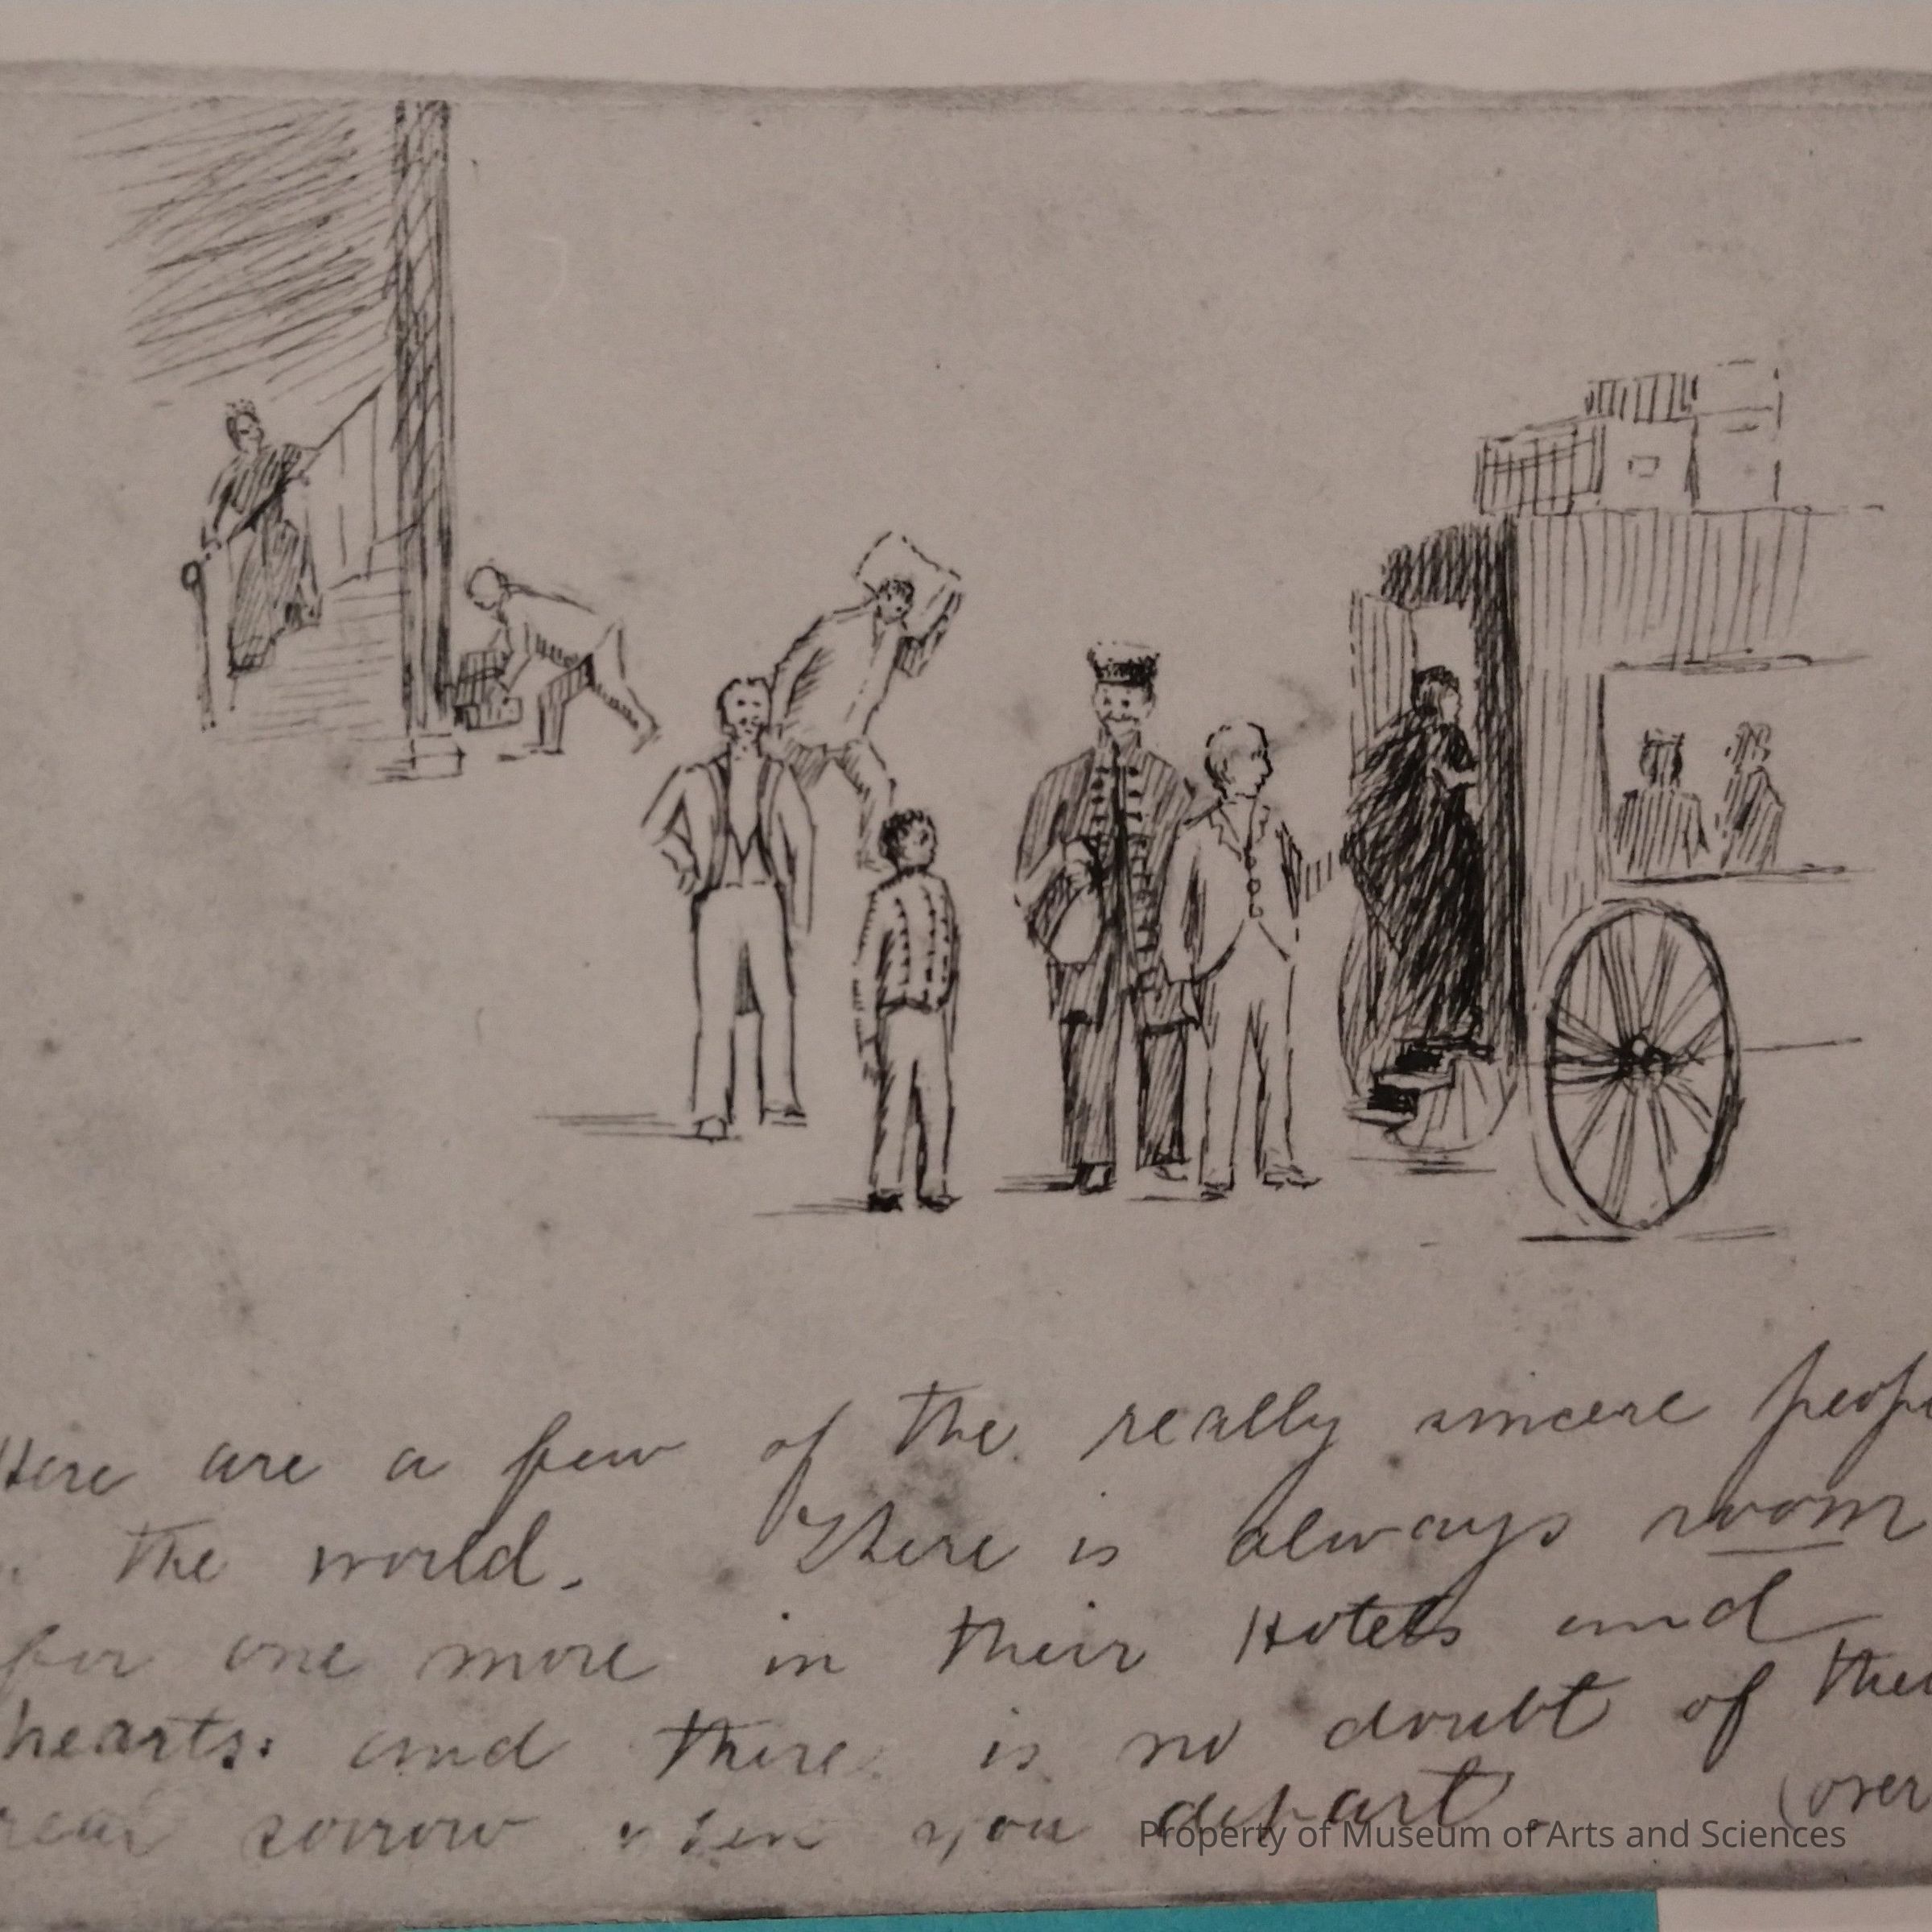 Here are a few of the really sincere peop
the world. There is always room
for one more in their Hotels and
hearts: and there is no doubt of thei
real sorrow when you depart. (over
Property of Museum of Arts and Sciences